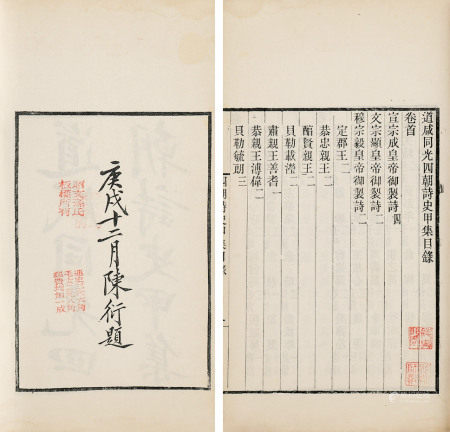 道咸同光四朝詩史甲集目錄
卷首
宣宗成皇帝御製詩四
文宗顯皇帝御製詩二
穆宗毅皇帝御製詩二
定郡王二
恭忠親王二
醇賢親王二
貝勒載瀅二
肅親王善耆一
恭親王溥偉二
貝勒毓朗三
庚戌十二月陳衍題